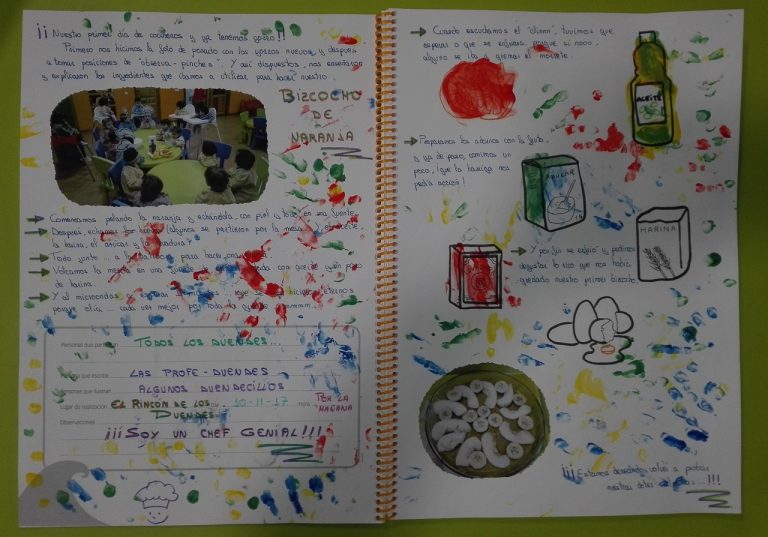 ¡¡ Nuestro primer día de cocineros y ya tenemos gorro!!
Primero nos hicimos la foto de posado con los gorros nuevos, y después
a tomar posiciones de "observa-pinches". Y así dispuestos, nos enseñaron
y explicaron los ingredientes que íbamos a utilizar para hacer nuestro.
BIZCOCHO
DE
NARANJA
Comenzamos pelando la naranja y echándola, con piel y todo, en una fuente.
Después, echamos los huevos (algunos se partieron por la mesa), el aceite,
la harina, el azúcar y la levadura.
Todo junto ... a la batidora para hacer
Volcamos la mezcla en una con aceite y un poco
de harina.
Y al microondas,
porque olía, ... cada vez mejor por toda la
Personas que
TODOS LOS DUENDES...
que escribe
LAS PROFE-DUENDES
Personas que ilustran
ALGUNOS DUENDECILLOS
Lugar de realización
EL RINCÓN DE LOS DUENDES
10-11-17
Hora
POR LA MAÑANA
Observaciones
¡¡¡SOY UN CHEF GENIAL!!!
Cuando escuchamos el "clinnn", tuvimos que
esperar a que se enfriara, porque si nooo,
alguno se iba a quemar el morrete.
ACEITE
Preparamos los adornos con la fruta,
y ya de paso, comimos un
poco, ¡que la harina nos
pedía acción!
AZUCAR
HARINA
Y por fin se enfrió y pudimos
degustar lo rico que nos había
quedado nuestro primer bizcocho
¡¡¡Estamos deseando volver a probar
nuestras dotes ...!!!